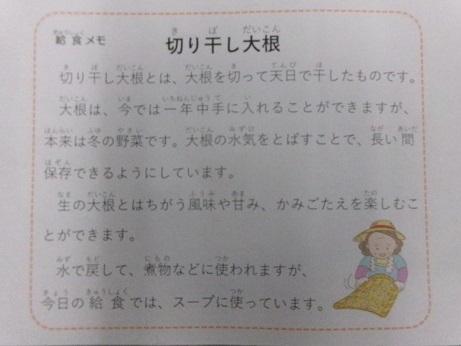 給食メモ 切り干し大根
切り干し大根とは、大根を切って天日で干したものです。
大根は、今では一年中手に入れることができますが、
本来は冬の野菜です。大根の水気をとばすことで、長い間
保存できるようにしています。
生の大根とはちがう風味や甘み、かみごたえを楽しむこ
とができます。
水で戻して、煮物などに使われますが、
今日の給食では、スープに使っています。